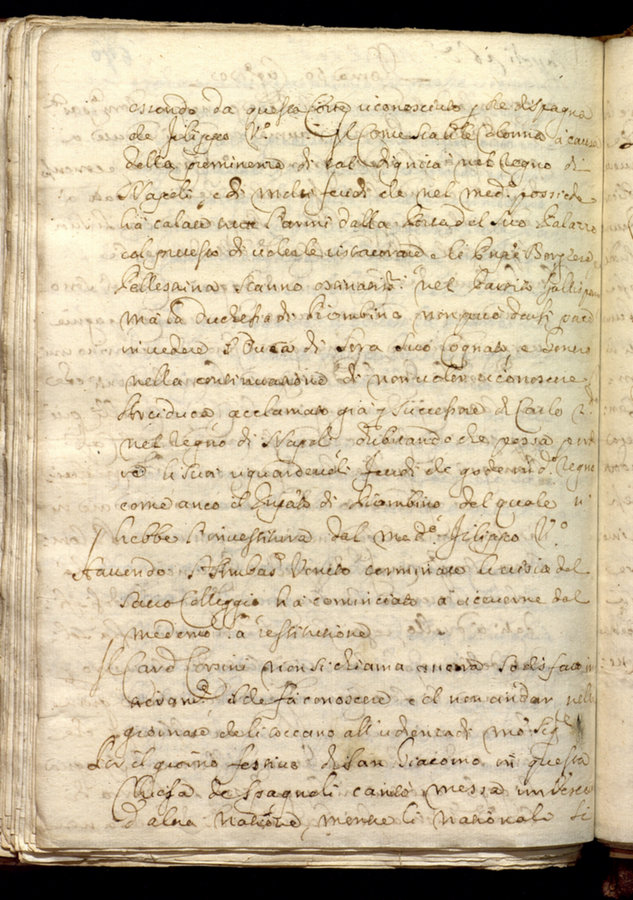 essendo da questa Corte riconosciuto p Re di Spagna
che Filippo Vº. Il Contestabile Colonna à causa
della preminenza di tal dignità nel Regno di
Napoli, e di molti feudi che nel med.º possiede
hà calate tutte l'armi dalla Porta del suo Palazzo
col pretesto di volerle ristaurare e li Prpi Borghese
Pellegrina stanno ostinatiss.i nel Partito Gallispano
mà la Duchessa di Piombino non può darsi pace
in vedere il Duca di Sora suo Cognato, e Genero
nella continuatione di non voler riconoscere
Arciduca acclamato già p successore di Carlo 2.º
nel Regno di Napoli dubitando che possa perder
li suoi riguardevoli feudi che gode in d.º Regno
come anco il Stato di Piombino del quale n'
hebbe l'investitura dal med.º Filippo Vº.
Havendo l'Ambas.r Veneto terminate le visite del
Sacro Colleggio hà cominciato à riceverne dal
medemo la restitutione
Il Card Corsini non si chiama ancora sodisfatto
il che fà conoscere col non andar nelle
giornate che li toccano all'udienza di
Per il giorno festivo di San Giacomo in questa
Chiesa de Spagnoli cantò messa un Vescovo
d'altra natione, mentre li nationali si